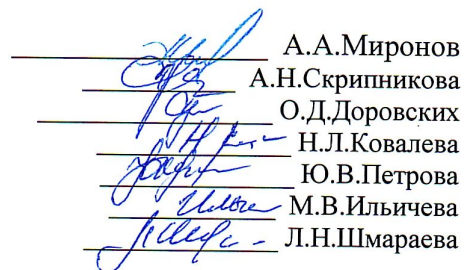 А.А.Миронов
А.Н.Скрипникова
О.Д.Доровских
Н.Л.Ковалева
Ю.В.Петрова
М.В.Ильичева
Л.Н.Шмараева